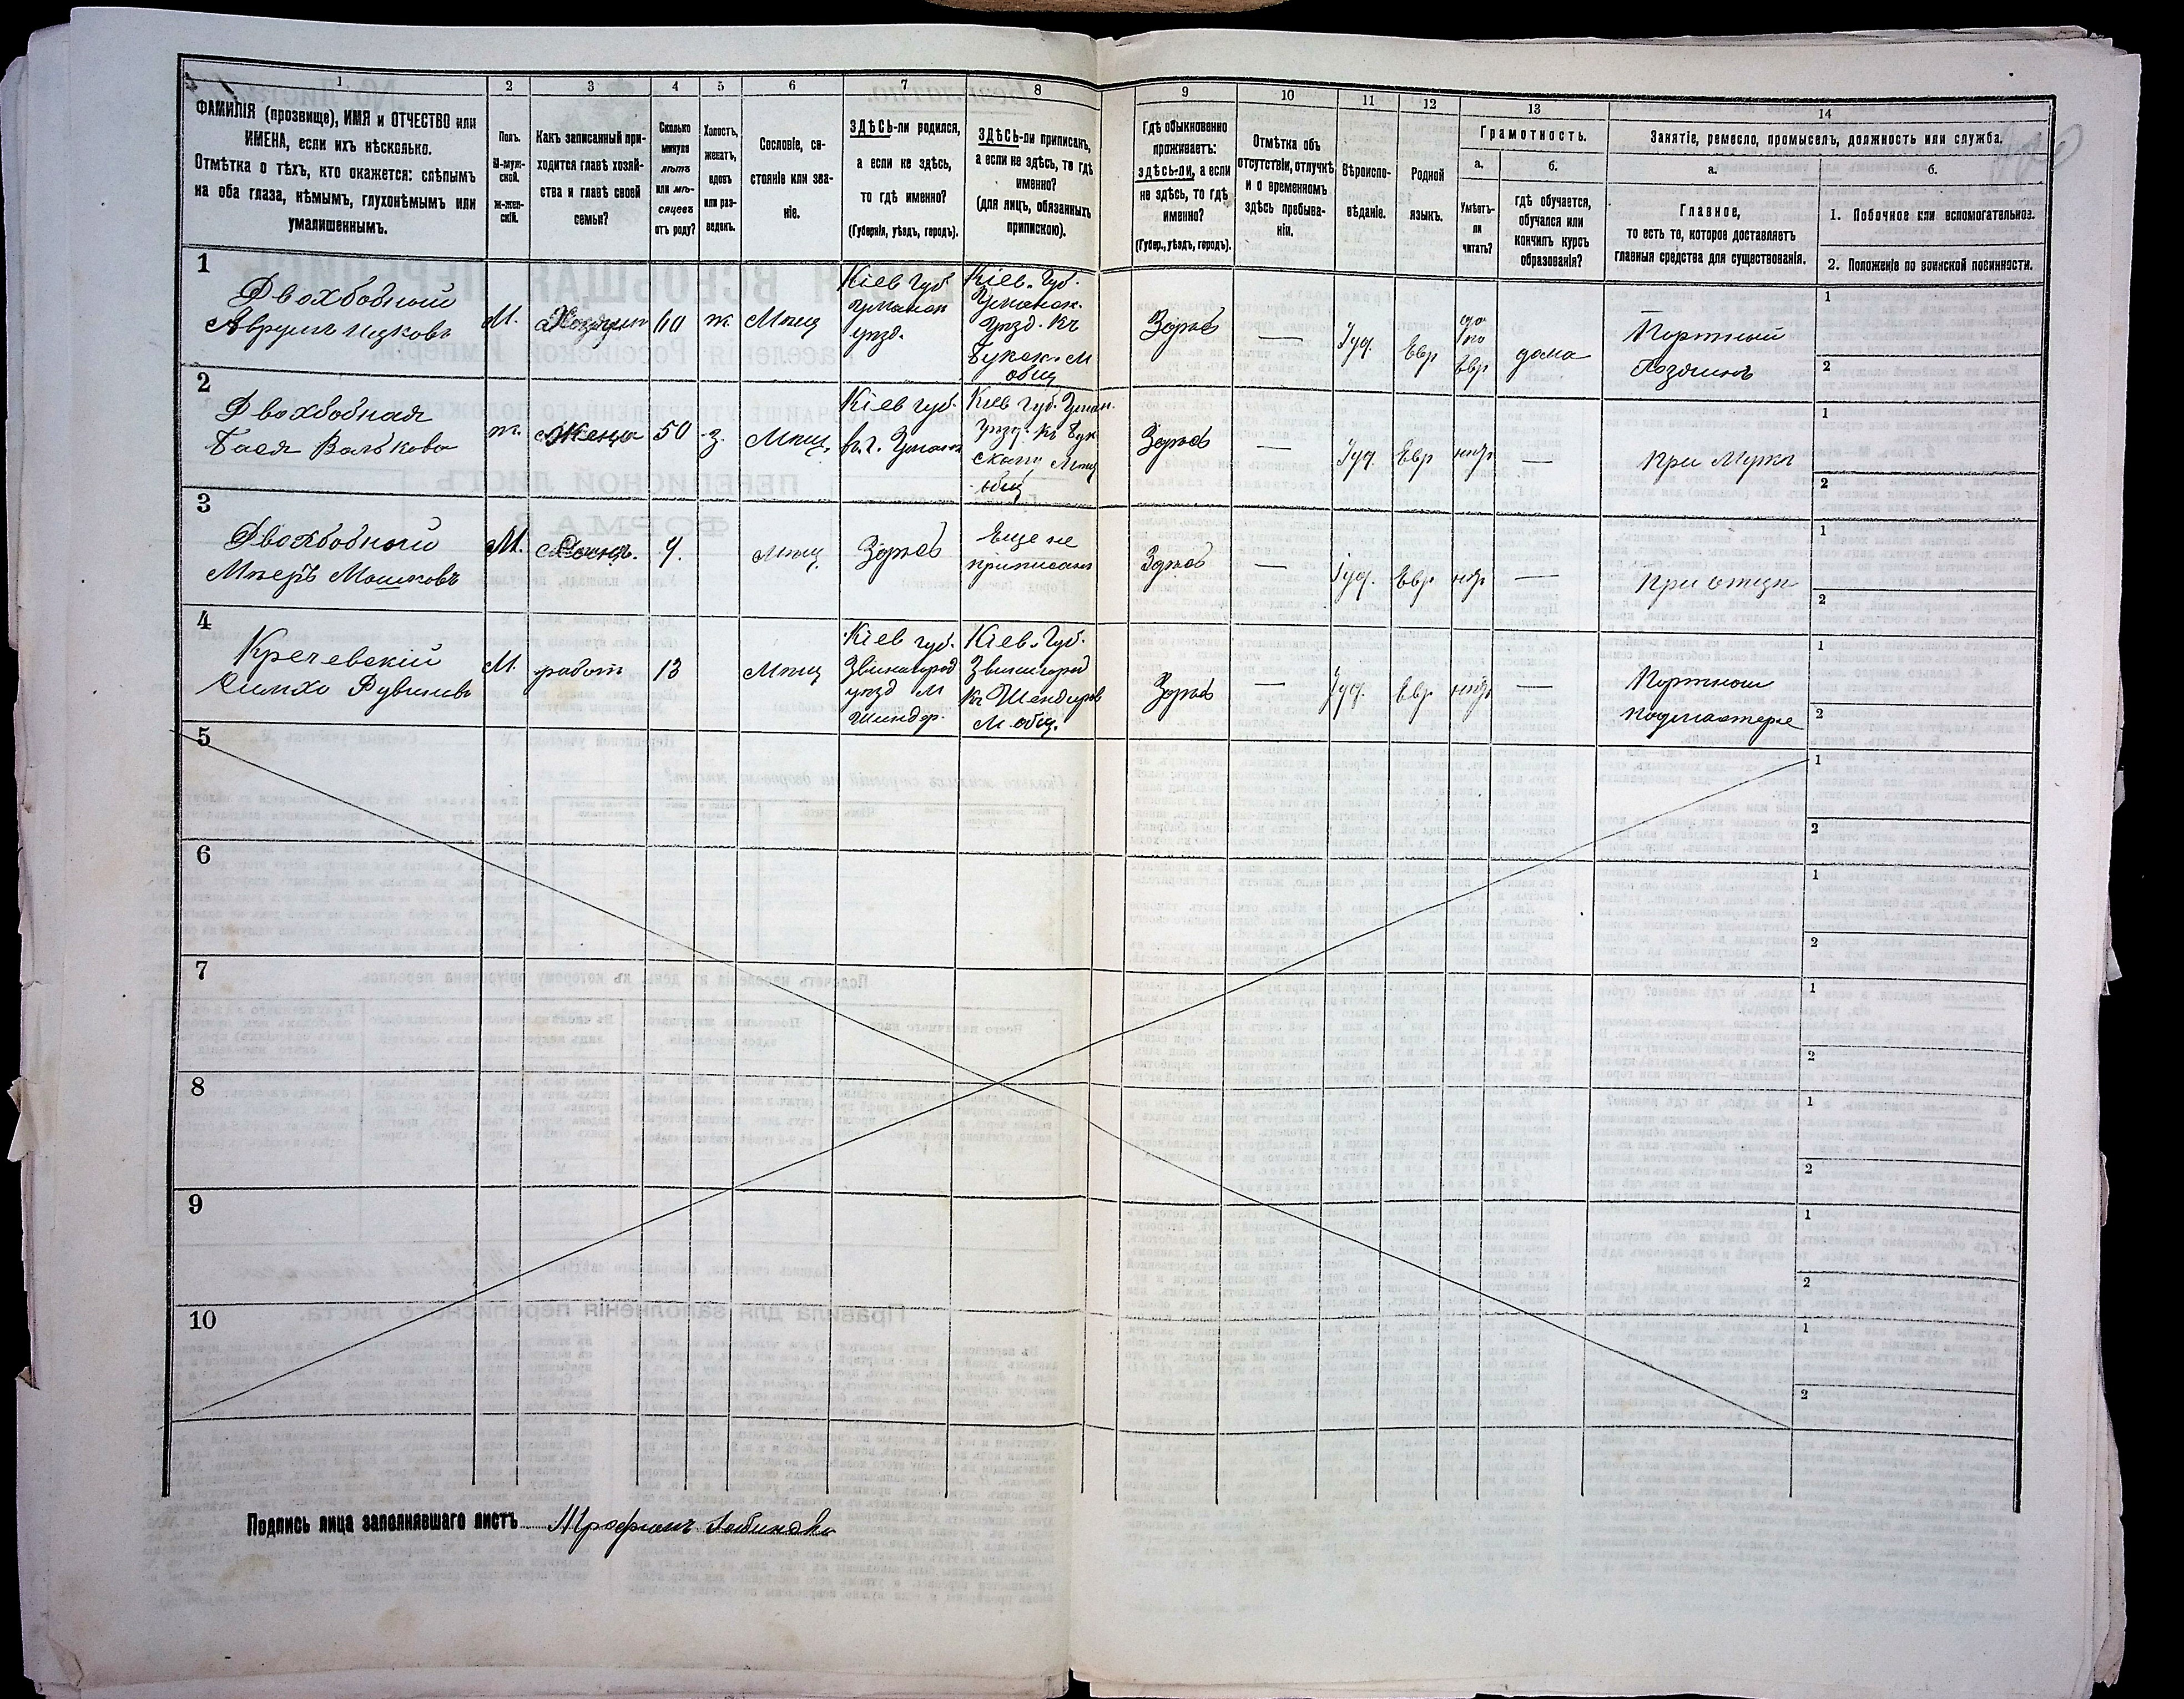 1
2
3
4
5
6
7
8
9
10
11
12
13
14
ФАМИЛІЯ (прозвище), ИМЯ и ОТЧЕСТВО или
ИМЕНА, если ихъ нѣсколько.
Отмѣтка о тѣхъ, кто окажется: слѣпымъ
на оба глаза, нѣмымъ, глухонѣмымъ или
умалишеннымъ.
Полъ.
М-муж-
ской.
Ж-жен-
скій.
Какъ записанный при-
ходится главѣ хозяй-
ства и главѣ своей
семьи?
Сколько
минуло
лѣтъ
или мѣ-
сяцевъ
отъ роду?
Холостъ,
женатъ,
вдовъ
или раз-
веденъ.
Сословіе, со-
стояніе или зва-
ніе.
ЗДѢСЬ-ли родился,
а если не здѣсь,
то гдѣ именно?
(Губернія, уѣздъ, городъ).
ЗДѢСЬ-ли приписанъ,
а если не здѣсь, то гдѣ
именно?
(для лицъ, обязанныхъ
припискою).
Гдѣ обыкновенно
проживаетъ:
здѣсь-ли, а если
не здѣсь, то гдѣ
именно?
(Губер., уѣздъ, городъ).
Отмѣтка объ
отсутствіи, отлучкѣ
и о временномъ
здѣсь пребыва-
ніи.
Вѣроиспо-
вѣданіе.
Родной
языкъ.
Грамотность.
а.
Умѣетъ-
ли
читать?
б.
гдѣ обучается,
обучался или
кончилъ курсъ
образованія?
Занятіе, ремесло, промыселъ, должность или служба.
а.
Главное,
то есть то, которое доставляетъ
главныя средства для существованія.
б.
1. Побочное или вспомогательное.
2. Положеніе по воинской повинности.
1
Двохбобный
Аврумъ Ицковъ
М.
Хозяинъ
60
ж.
Мѣщ
Кіев губ
Уманск
уѣзд.
Кіев. Губ.
Уманск.
Уѣзд. Къ
Букск. М
общ
Здѣсь
—
Іуд.
Евр
по
Евр
дома
Портной
Хозяинъ
1
2
2
Двохбобная
Бася Волькова
ж.
Жена
50
з.
Мѣщ.
Кіев губ.
въ г. Умани
Кіев губ. Уман.
Уѣзд. Къ Бук
скому Мѣщ
общ
Здѣсь
—
Іуд.
Евр
нѣт
—
При Мужѣ
1
2
3
Двохбобный
Мееръ Мошковъ
М.
мѣщ
Здѣсь
Еще не
приписанъ
Здѣсь
—
Іуд.
Евр
нѣт
—
При отцѣ
1
2
4
Кречевскій
Симхо Рувиновъ
М.
работ
13
Мѣщ
Кіев губ.
Звенигород
уѣзд М
Шендер.
Кіев. Губ.
Звенигород
Къ Шендеров
М. общ.
Здѣсь
—
Іуд.
Евр
нѣт
—
Портной
подмастерье
1
2
5
1
2
6
1
2
7
1
2
8
1
2
9
1
2
10
1
2
Подпись лица заполнявшаго листъ